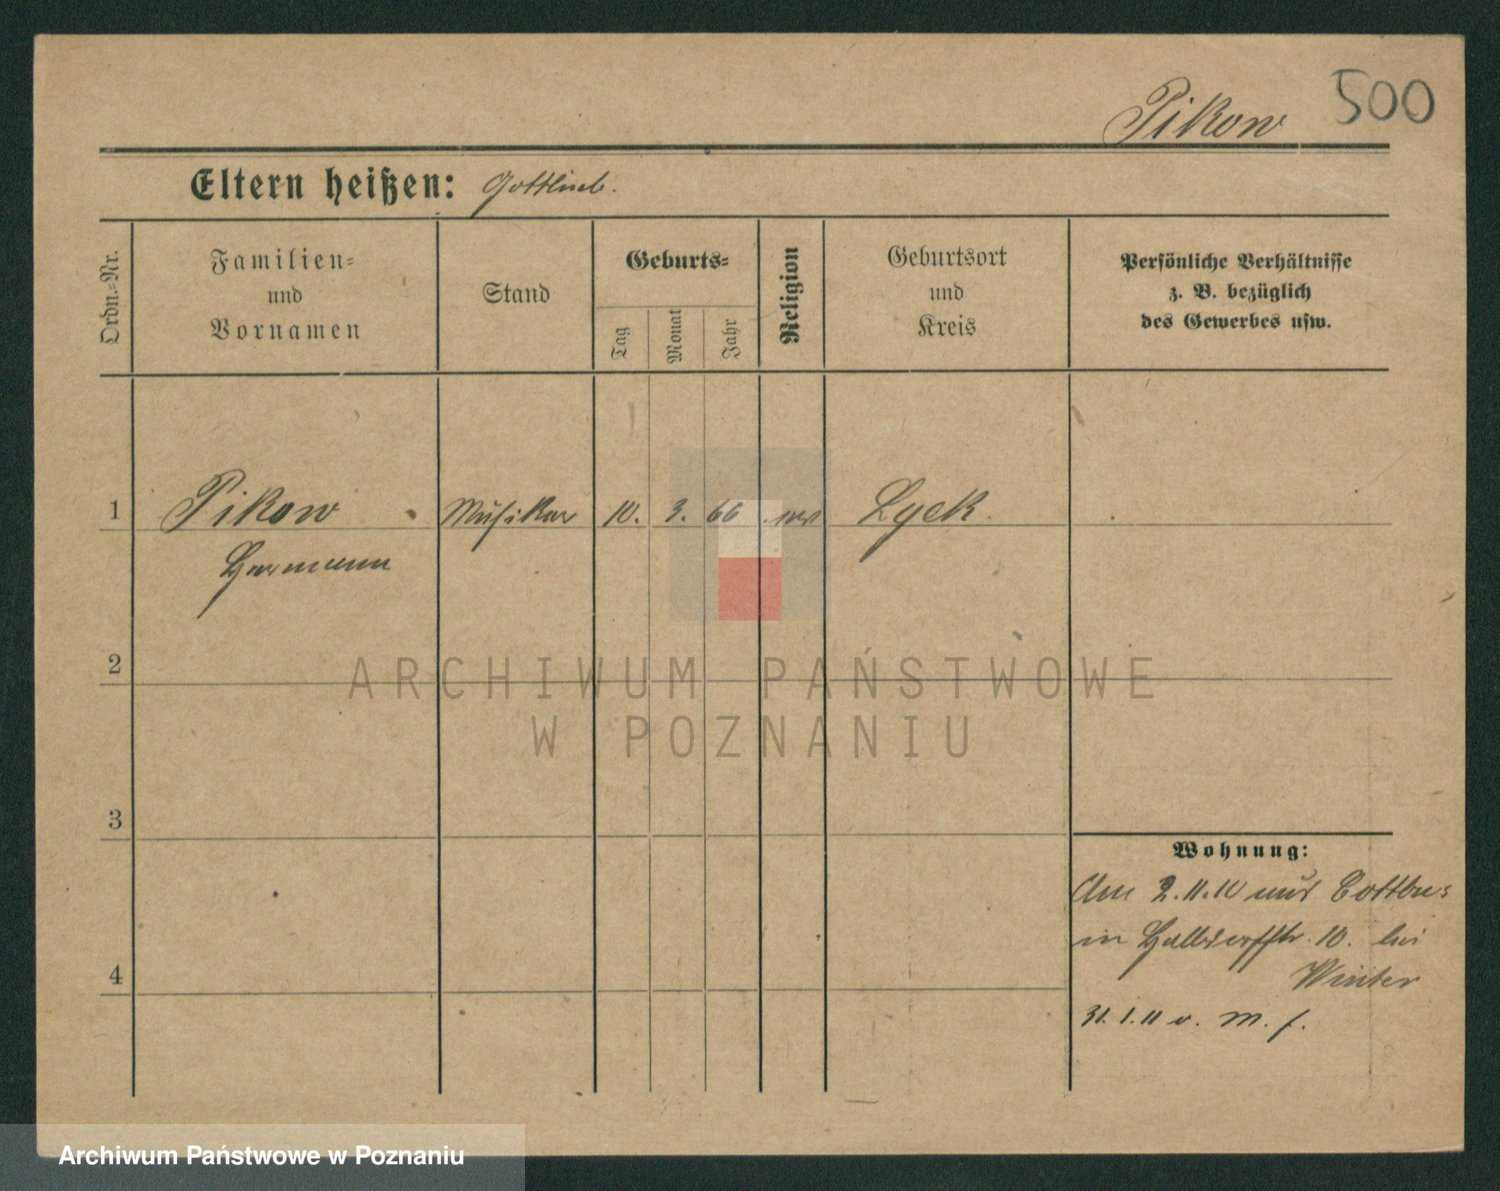 Pikow 500
Eltern heißen: Gottlieb.
Ordn.-Nr.
Familien-
und
Vornamen
Stand
Geburts-
Tag
Monat
Jahr
Religion
Geburtsort
und
Kreis
Persönliche Verhältnisse
z. B. bezüglich
des Gewerbes usw.
1 Pikow Musiker 10. 3. 66 Lyck
Hermann
2
ARCHIWUM PAŃSTWOWE
W POZNANIU
3
Wohnung:
Am 2.11.10 aus Cottbus
in 10. bei
4
Winter
31.1.11 v. M. f.
Archiwum Państwowe w Poznaniu